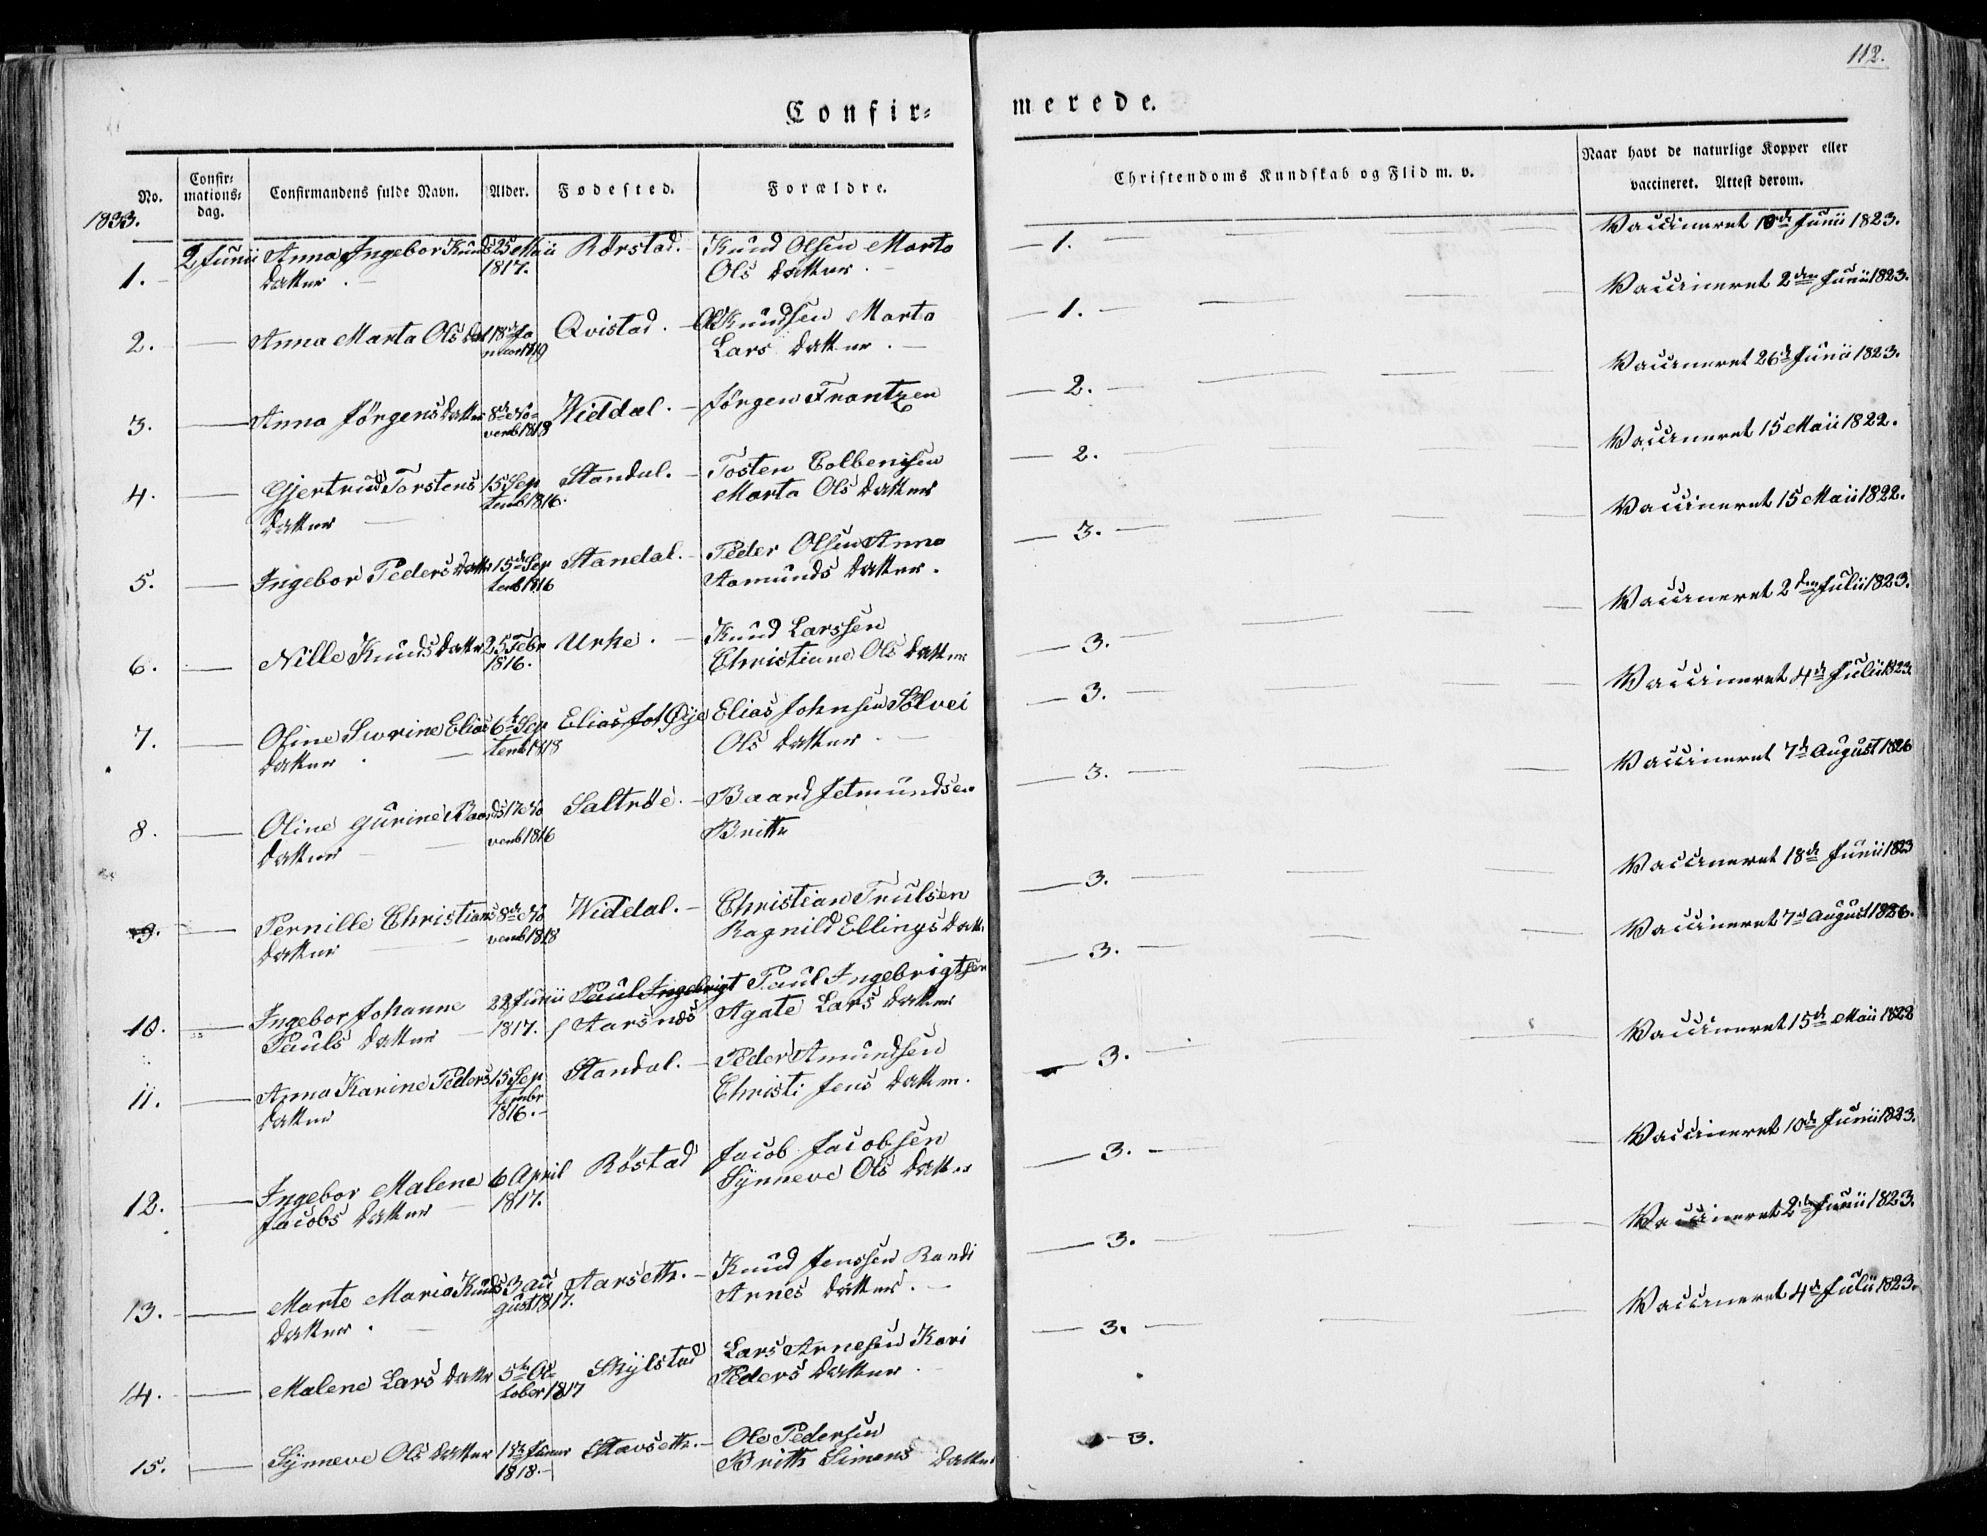 112.
Confir=
merede.
No.
Confir-
mations-
dag.
Confirmandens fulde Navn.
Alder.
Fødested.
Forældre.
Christendoms Kundskab og Flid m. v.
Naar havt de naturlige Kopper eller
vaccineret. Attest derom.
1833.
1. 2 Junii Anna Ingebor Knuds 25 Maii Rørstad. Knud Olsen Marta — 1. — Vaccineret 10de Junii 1823.
datter 1817. Ols datter
2. Anna Marta Ols dat 18de Ja Qvistad. Ole Knudsen Marta — 1. — Vaccineret 2den Junii 1823.
nuar 1819 Lars datter
3. Anna Jørgens datter 8de No- Widdal. Jørgen Frantzen — 2. — Vaccineret 26de Junii 1823.
vemb 1818
4. Gjertrud Torstens 15 Sep Standal. Tosten Colbensen — 2. — Vaccineret 15 Maii 1822.
datter temb 1816. Marta Ols datter
5. Ingebor Peders datter 15de Sep Standal. Peder Olsen Anna — 3. — Vaccineret 15 Maii 1822.
temb 1816 Aamunds datter.
6. Nille Knuds datter 25 Febr Urke. Knud Larssen — 3. — Vaccineret 2den Julii 1823.
1816. Christiane Ols datter
7. Oline Severine Elias 6te Sep Elias Joh Øye Elias Johnsen Sølvei — 3. — Vaccineret 4de Julii 1823.
datter temb 1818 Ols datter
8. Oline Gurine Baards 17 No Saltrøe. Baard Jetmundsen — 3. — Vaccineret 7de August 1826
datter vemb 1816 Britte
9. Pernille Christians 8de No Widdal. Christian Trulsen — 3. — Vaccineret 18de Junii 1823
datter vemb 1818 Ragnild Ellings datt
10. Ingebor Johanne 22 Junii Paul Ingebrigt Paul Ingebrigtsen — 3. — Vaccineret 7de August 1826.
Pauls datter 1817. Aarsnes Agate Lars datter
11. Anna Karine Peders 15 Sep Standal. Peder Amundsen — 3. — Vaccineret 15de Maii 1822
datter tembr Christi Jens datter.
1816.
12. Ingebor Malene 6 April Røstad Jacob Jacobsen — 3. — Vaccineret 10de Junii 1823.
Jacobs datter 1817. Synneve Ols datter
13. Marte Maria Knuds 3 Au Aarseth. Knud Jenssen Randi — 3. — Vaccineret 2de Junii 1823.
datter gust 1817. Arnes datter.
14. Malene Lars datter 5te Oc Skylstad Lars Arnesen Kari — 3. — Vaccineret 4de Julii 1823.
tober 1817 Peders datter
15. Synneve Ols datter Stavseth. Ole Pedersen — 3.
1818. Brith Simens datter